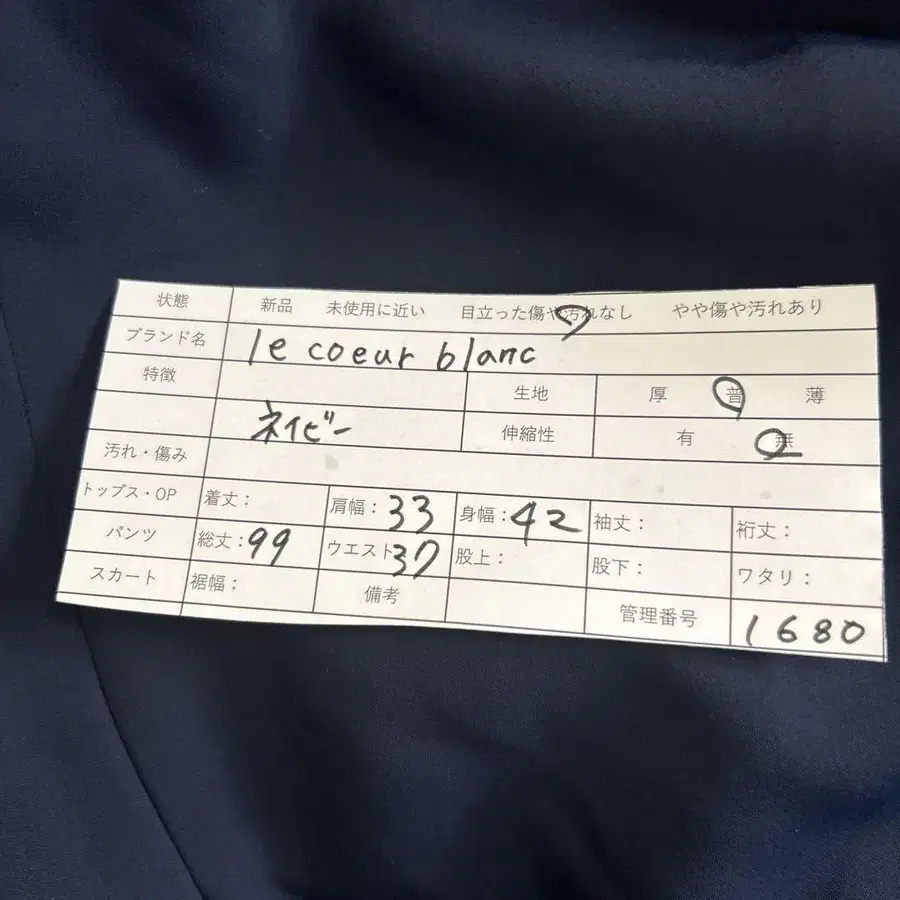 状態 新品 未使用に近い 目立った傷や汚れなし やや傷や汚れあり
ブランド名 le coeur blanc
特徴 生地 厚 普 薄
ネイビー 伸縮性 有 無
汚れ・傷み
トップス・OP 着丈: 肩幅:33 身幅:42 袖丈: 裄丈:
パンツ 総丈:99 ウエスト37 股上: 股下: ワタリ:
スカート 裾幅: 備考 管理番号 1680